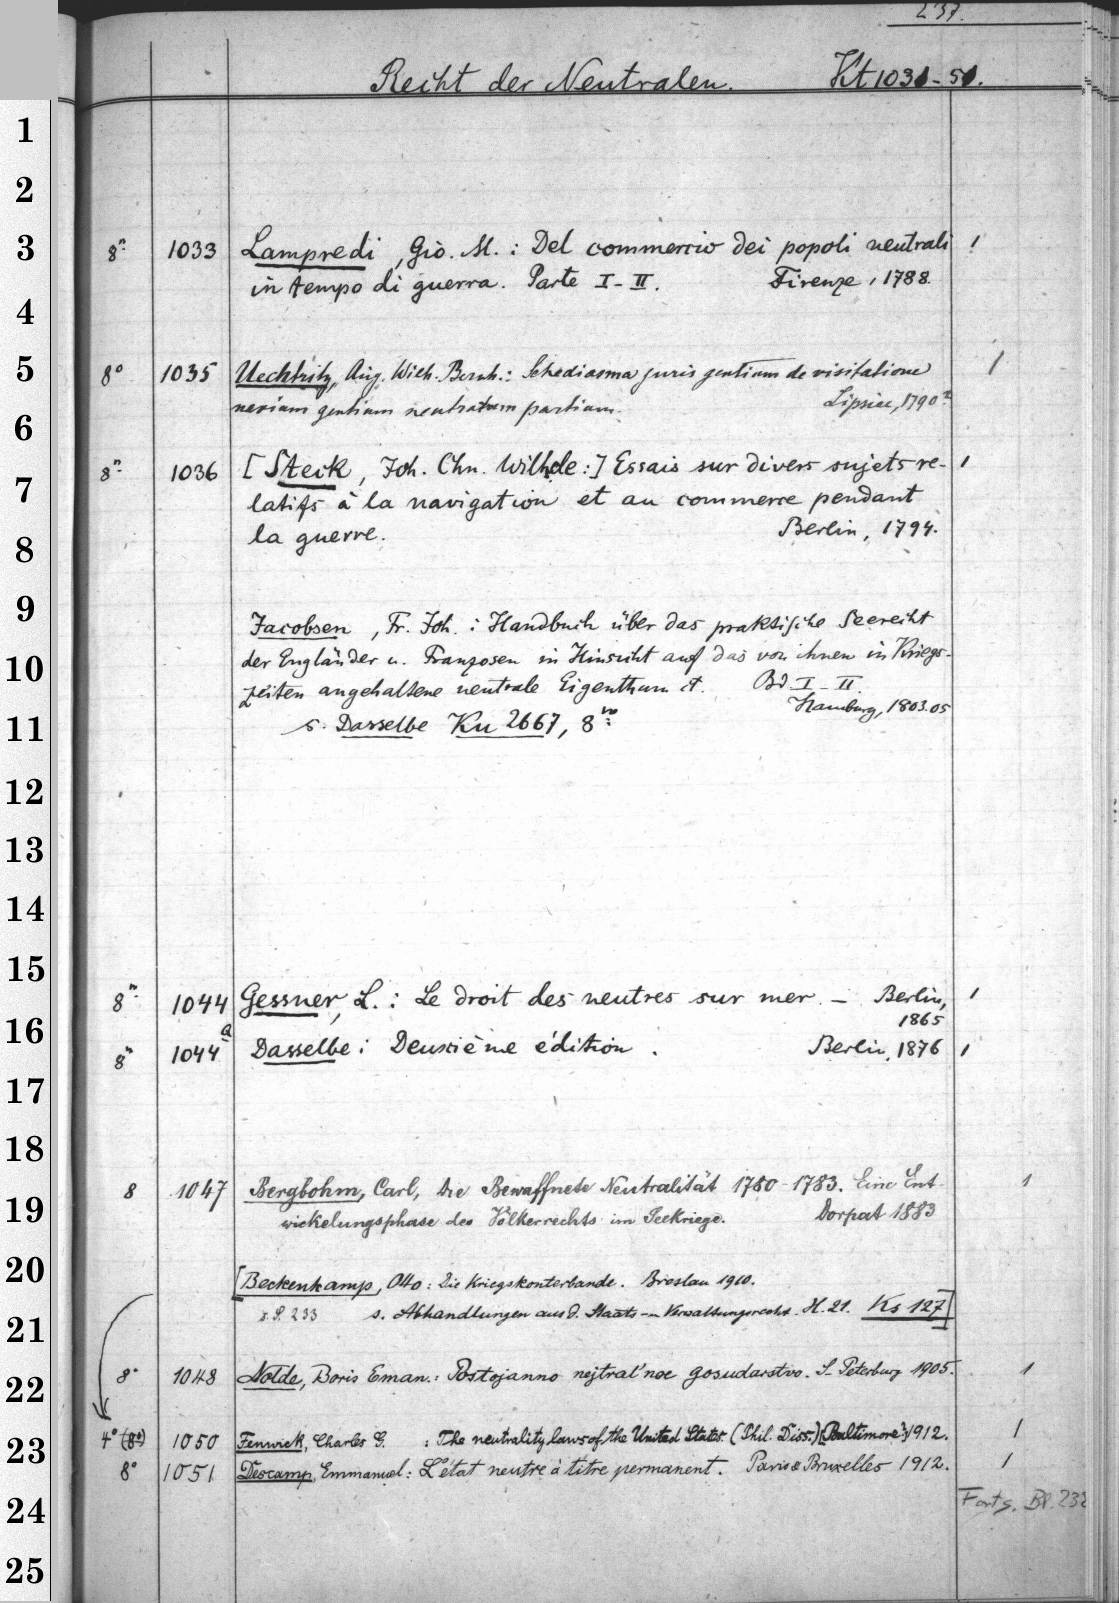 237.
Recht der Neutralen. Kt 1031-51.
1
2
3 8° 1033 Lampredi, Gio. M.: Del commercio dei popoli neutrali 1
in tempo di guerra. Parte I-II. Firenze, 1788.
4
5 8° 1035 Uechtritz, Aug. Wilh. Bernh.: Schediasma juris gentium de visitatione 1
navium gentium neutrarum partium. Lipsiae, 1790
6
7 8° 1036 [Steck, Joh. Chn. Wilh. de:] Essais sur divers sujets re- 1
latifs à la navigation et au commerce pendant
8 la guerre. Berlin, 1794.
9 Jacobsen, Fr. Joh.: Handbuch über das praktische Seerecht
10 der Engländer u. Franzosen in Hinsicht auf das von ihnen in Kriegs-
zeiten angehaltene neutrale Eigenthum Bd. I-II.
Hamburg, 1803.05
11 s. Dasselbe Ku 2667, 8°
12
13
14
15
8° 1044 Gessner, L.: Le droit des neutres sur mer. — Berlin, 1
16 1865
8° 1044a Dasselbe: Deuxième édition. Berlin, 1876 1
17
18
8 1047 Bergbohm, Carl, die Bewaffnete Neutralität 1780-1783. Eine Ent- 1
19 wickelungsphase des Völkerrechts im Seekriege. Dorpat 1883
20 [Beckenkamp, Otto: Die Kriegskonterbande. Breslau 1910.
s. S. 233 s. Abhandlungen aus d. Staats- u. Verwaltungsrecht. H. 21. Ks 127]
21
22 8° 1048 Nolde, Boris Eman.: Postojanno nejtral'noe gosudarstvo. S-Peterburg 1905. 1
23 4° (8°) 1050 Fenwick, Charles G.: The neutrality laws of the United States. (Phil. Diss.) [Baltimore:] 1912. 1
8° 1051 Descamp, Emmanuel: L'état neutre à titre permanent. Paris & Bruxelles 1912. 1
24 Forts. Bl. 232
25